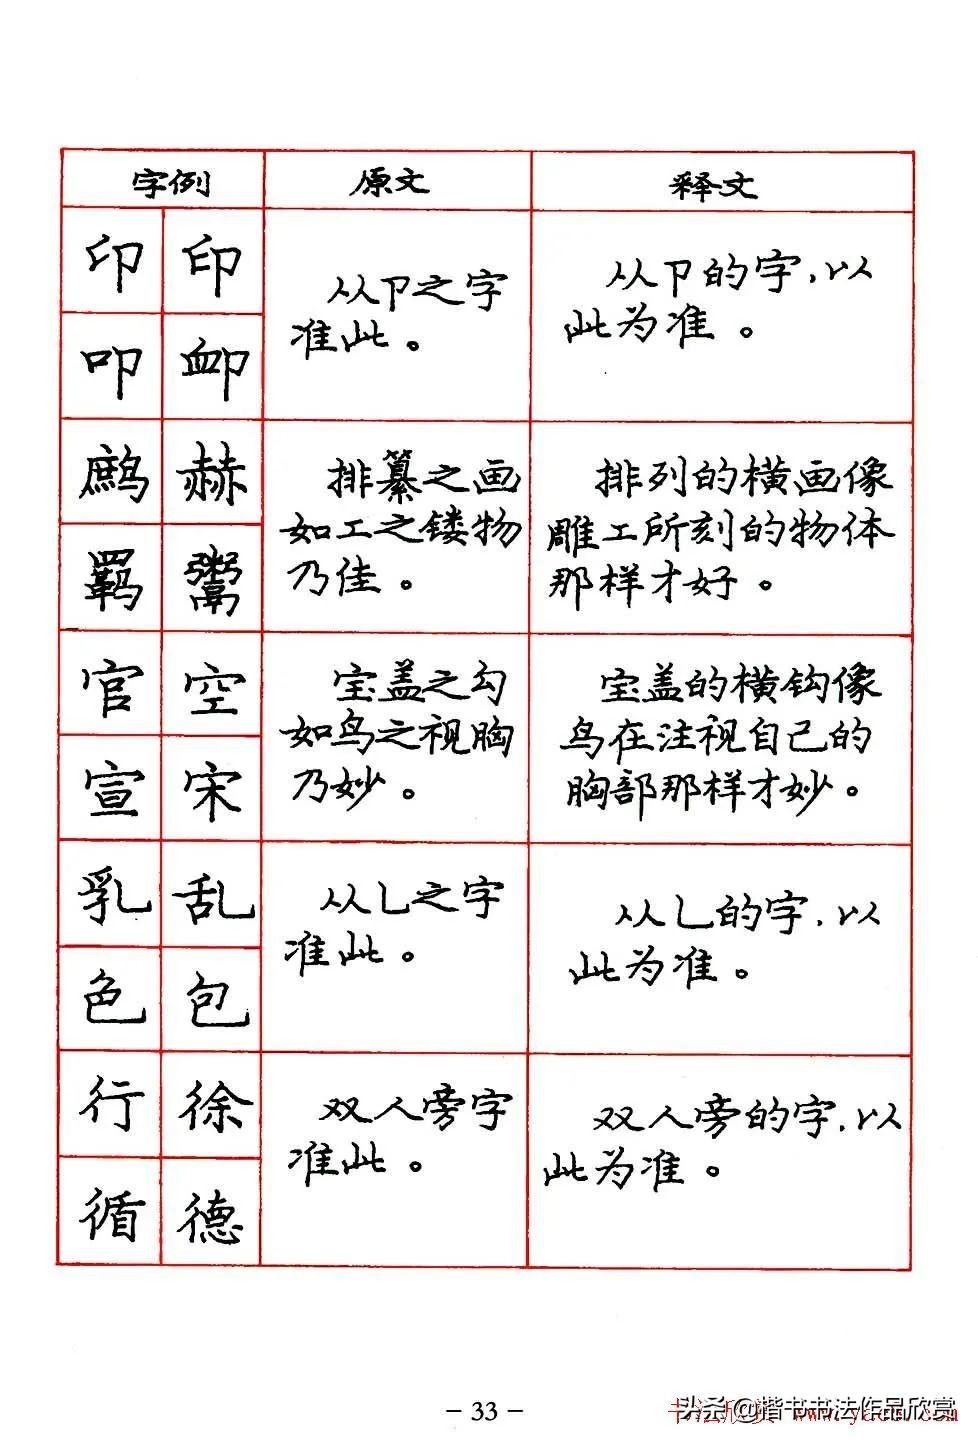 字例 原文 释文
印 印
叩 卹
从卩之字
准此。
从卩的字,以
此为准。
鹧 赫
羁 鬻
排纂之画
如工之镂物
乃佳。
排列的横画像
雕工所刻的物体
那样才好。
官 空
宣 宋
宝盖之勾
如鸟之视胸
乃妙。
宝盖的横钩像
鸟在注视自己的
胸部那样才妙。
乳 乱
色 包
从乚之字
准此。
从乚的字,以
此为准。
行 徐
循 德
双人旁字
准此。
双人旁的字,以
此为准。
- 33 -
头条@楷书书法作品欣赏